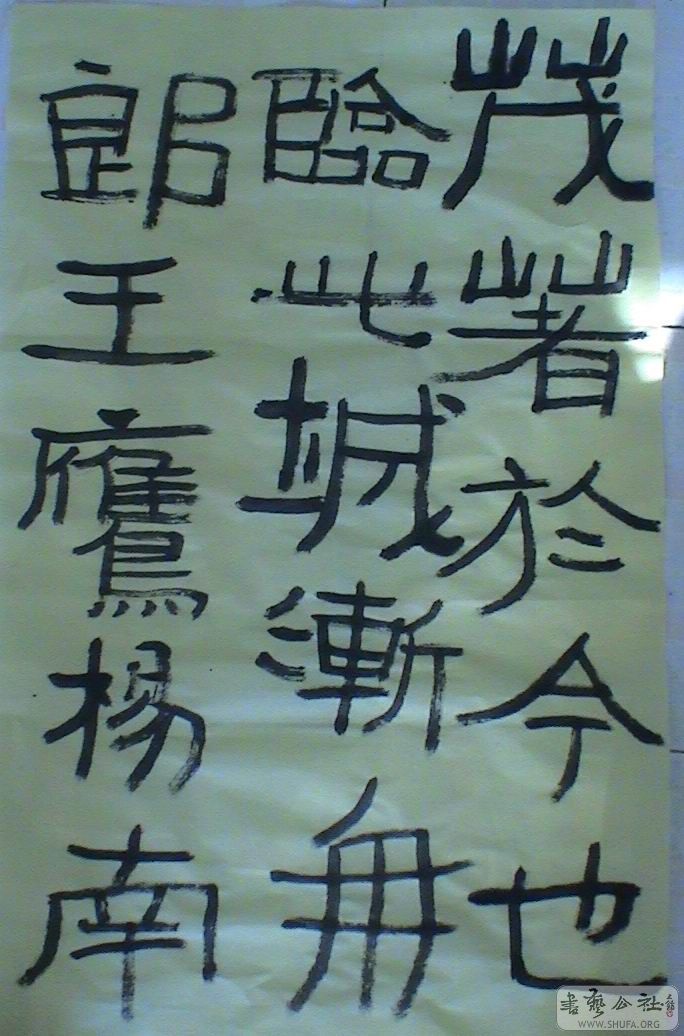 茂著於今也
臨此城漸
郎王鷹楊南
書藝公社
WWW.SHUFA.ORG